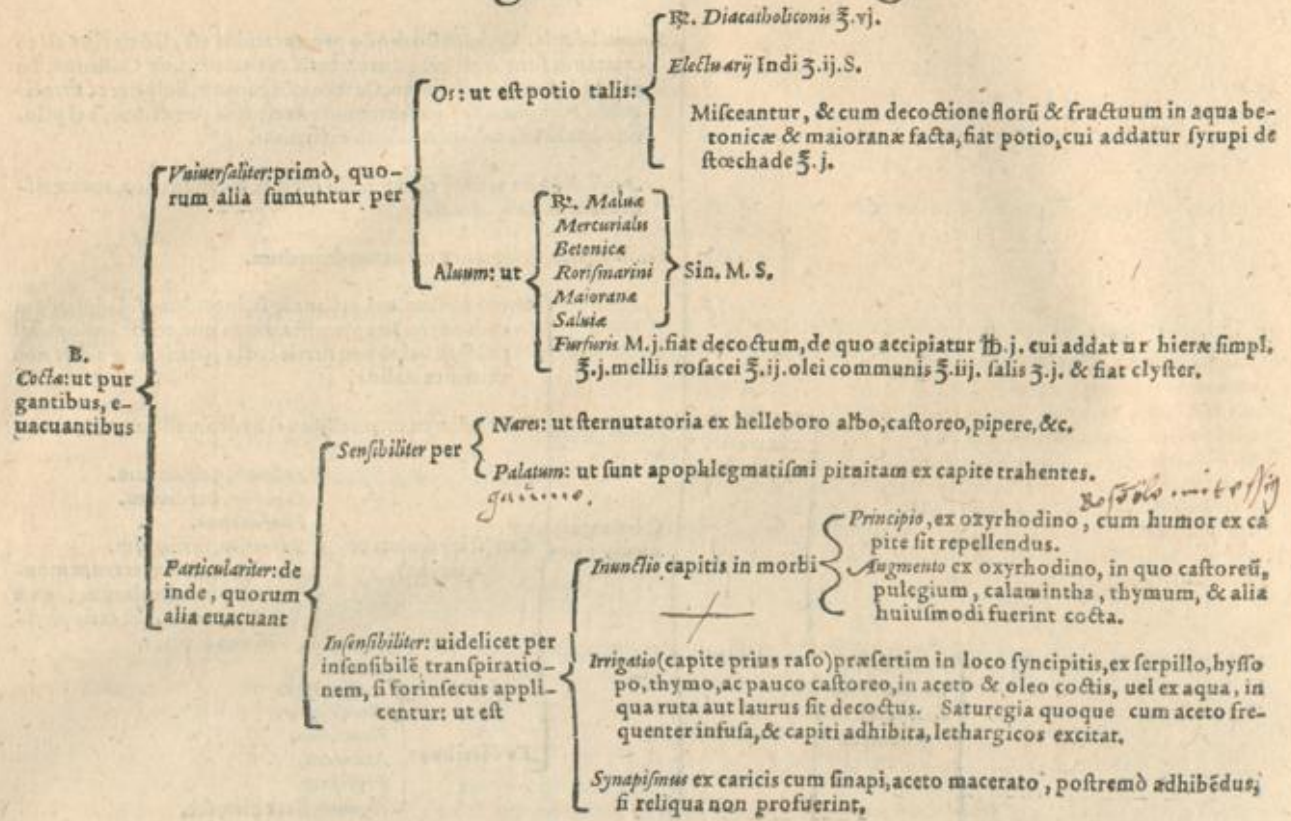 B.
Coctæ: ut pur
gantibus, e-
uacuantibus
Vniuersaliter: primò, quo-
rum alia sumuntur per
Os: ut est potio talis:
℞. Diacatholiconis ℥.vj.
Electuarij Indi ʒ.ij.S.
Misceantur, & cum decoctione florũ & fructuum in aqua be-
tonicæ & maioranæ facta, fiat potio, cui addatur syrupi de
stœchade ℥.j.
Aluum: ut
℞. Maluæ
Mercurialis
Betonicæ
Rorismarini
Maioranæ
Saluiæ
Sin. M. S.
Furfuris M.j. fiat decoctum, de quo accipiatur ℔.j. cui addatur hieræ simpl.
℥.j. mellis rosacei ℥.ij. olei communis ℥.iij. salis ʒ.j. & fiat clyster.
Particulariter: de
inde, quorum
alia euacuant
Sensibiliter per
Nares: ut sternutatoria ex helleboro albo, castoreo, pipere, &c.
Palatum: ut sunt apophlegmatismi pituitam ex capite trahentes.
Insensibiliter: uidelicet per
insensibilẽ transpiratio-
nem, si forinsecus appli-
centur: ut est
Inunctio capitis in morbi
Principio, ex oxyrhodino, cum humor ex ca
pite sit repellendus.
Augmento ex oxyrhodino, in quo castoreũ,
pulegium, calamintha, thymum, & alia
huiusmodi fuerint cocta.
Irrigatio (capite prius raso) præsertim in loco syncipitis, ex serpillo, hysso
po, thymo, ac pauco castoreo, in aceto & oleo coctis, uel ex aqua, in
qua ruta aut laurus sit decoctus. Saturegia quoque cum aceto fre-
quenter infusa, & capiti adhibita, lethargicos excitat.
Synapismus ex caricis cum sinapi, aceto macerato, postremò adhibẽdus,
si reliqua non profuerint.